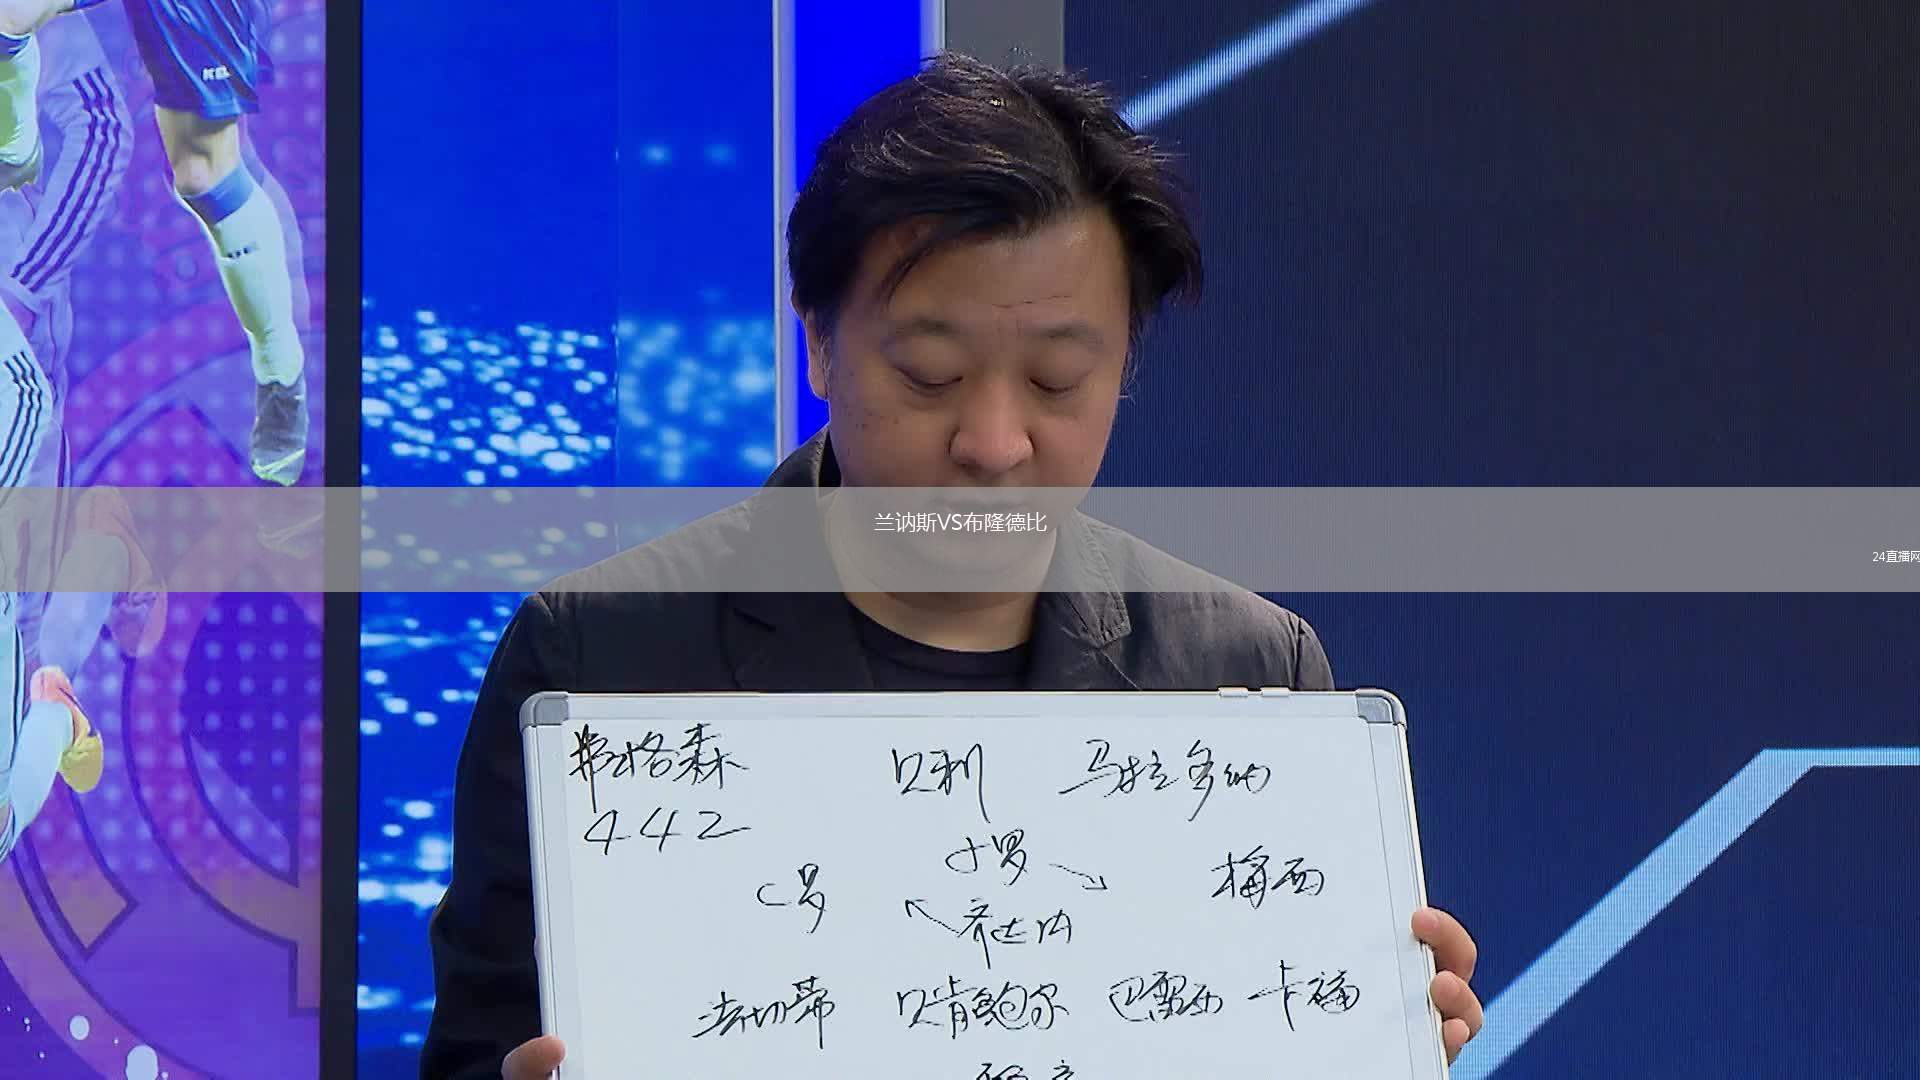 兰讷斯VS布隆德比
24直播网
弗格森 贝利 马拉多纳
442
小罗
C罗 梅西
齐达内
法切蒂 贝肯鲍尔 巴雷西 卡福